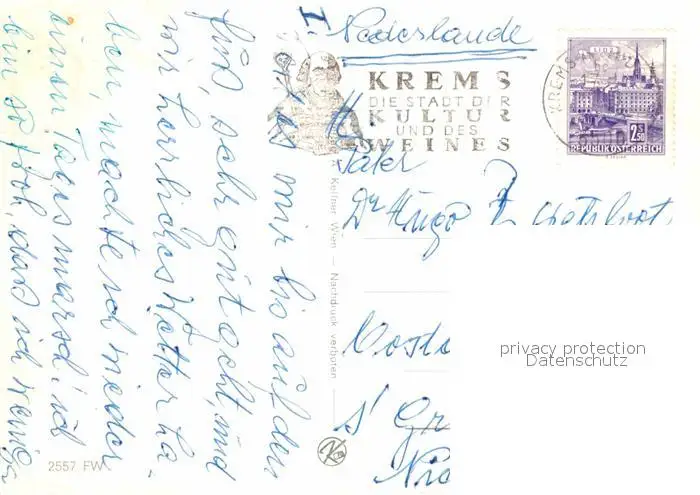 Niederlande
KREMS
DIE STADT DER
KULTUR
UND DES
WEINES
KREMS
LINZ
2.50
REPUBLIK ÖSTERREICH
Pater
Dr Hugo
s' Gr
mir bis auf den
sehr gut geht, und
wir herrliches Wetter ha-
ben, machte ich wieder
einen Tagesmarsch; ich
bin so froh, dass ich wenig
Kellner Wien — Nachdruck verboten
2557 FW
privacy protection
Datenschutz